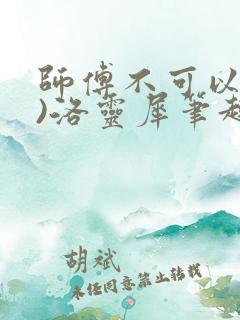 師傅不可以
)洛靈犀筆趣
胡斌
未经同意禁止转载